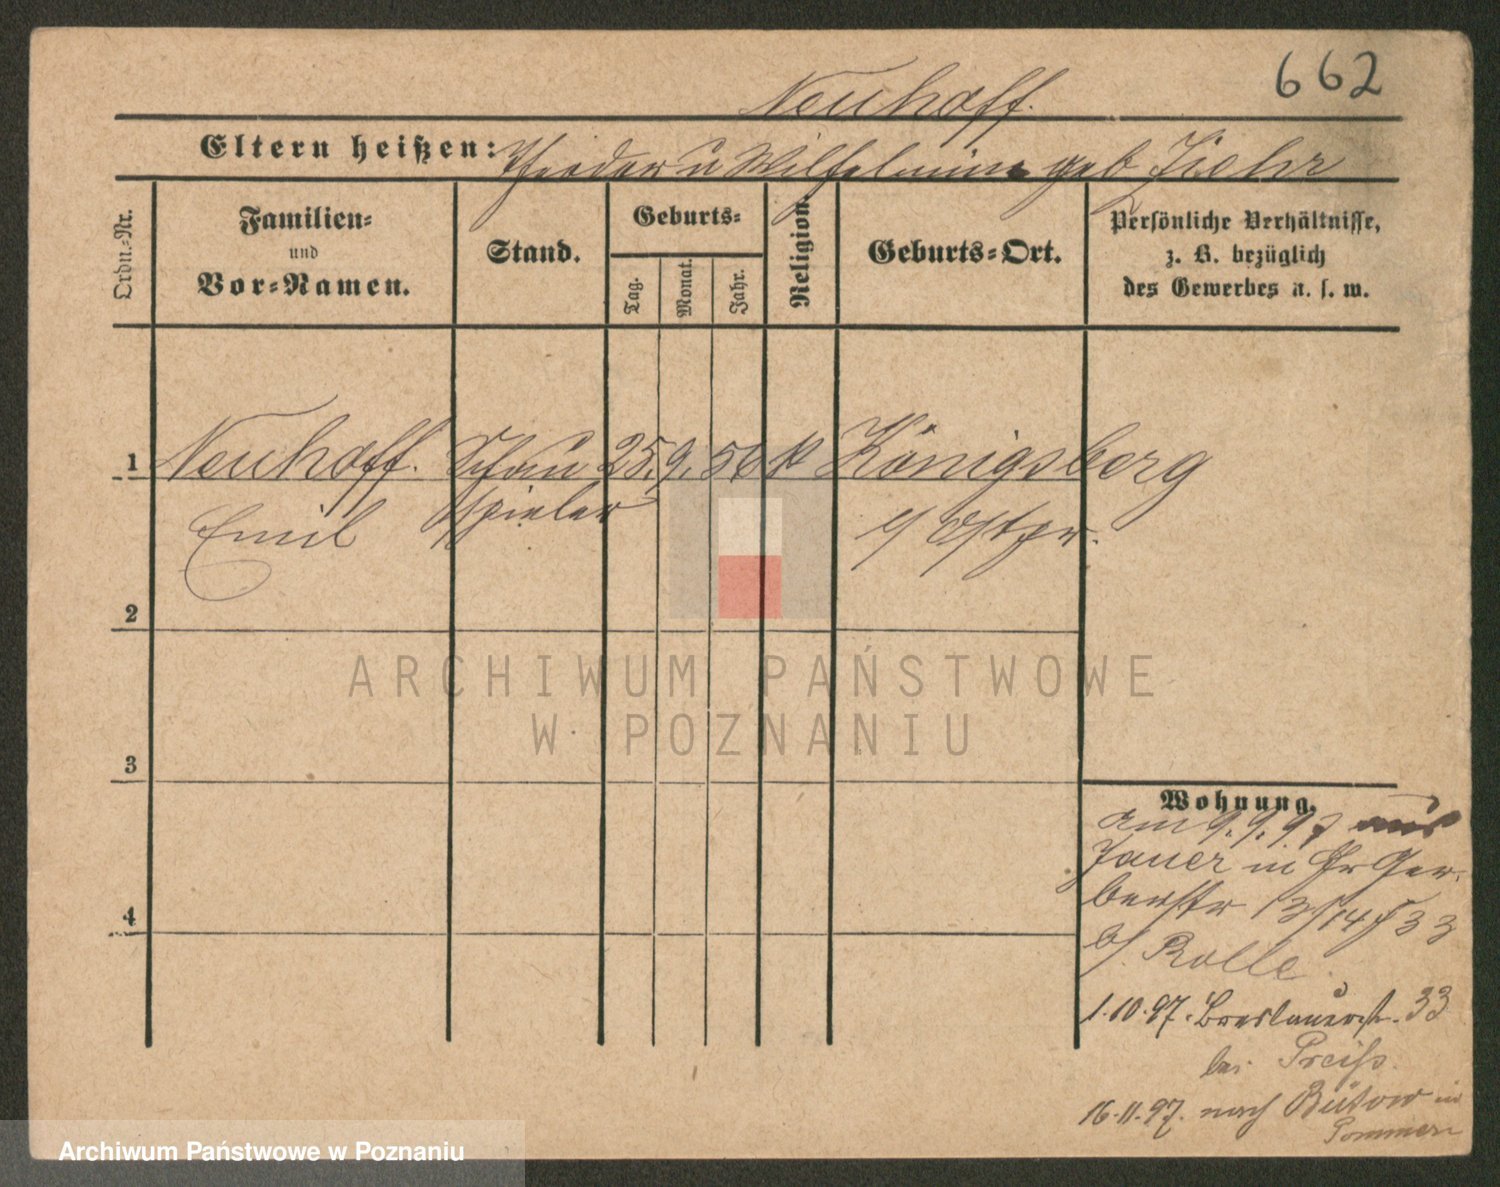 662
Neuhoff.
Eltern heißen: Theodor u Wilhelmine geb
Ordn.-Nr.
Familien-
und
Vor-Namen.
Stand.
Geburts-
Tag.
Monat.
Jahr.
Religion.
Geburts-Ort.
Persönliche Verhältnisse,
z. B. bezüglich
des Gewerbes u. s. w.
1 Neuhoff. Schau 25. 9. 56 k Königsberg
Emil spieler i/ Ostpr.
2
3
4
Wohnung.
am 9.9.97 aus
Jauer in Gr Ger-
berstr 13/14 33
b/. Rolle.
1.10.97. Breslauerstr. 33
bei Preiß.
16.11.97. nach Bütow in
Pommern
ARCHIWUM PAŃSTWOWE
W POZNANIU
Archiwum Państwowe w Poznaniu